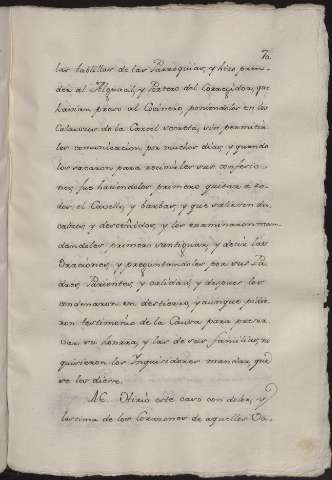 70
las tablillas de las Parroquias, y hizo pren-
der al Alguacil, y Portero del Corregidor, que
havian preso al Cocinero poniendolos en los
Calavozos de la Carcel secreta, sin permitir
les comunicacion por muchos dias, y quando
los sacaron para recivirles sus confesio-
nes, fue haciendoles primero quitar a to-
dos el Cavello, y barbas, y que saliesen des-
calzos, y desceñidos, y los examinaron man-
dandoles primero santiguar, y decir las
Oraciones, y preguntandoles por sus Pa-
dres Parientes, y calidad, y despues los
condenaron en destierro, y aunque pidie-
ron testimonio de la Causa para preser-
var su honrra, y la de sus familias, no
quisieron los Inquisidores mandar que
se les diese.
Hirió este caso con dolor, y
lastima de los Corazones de aquellos Va-